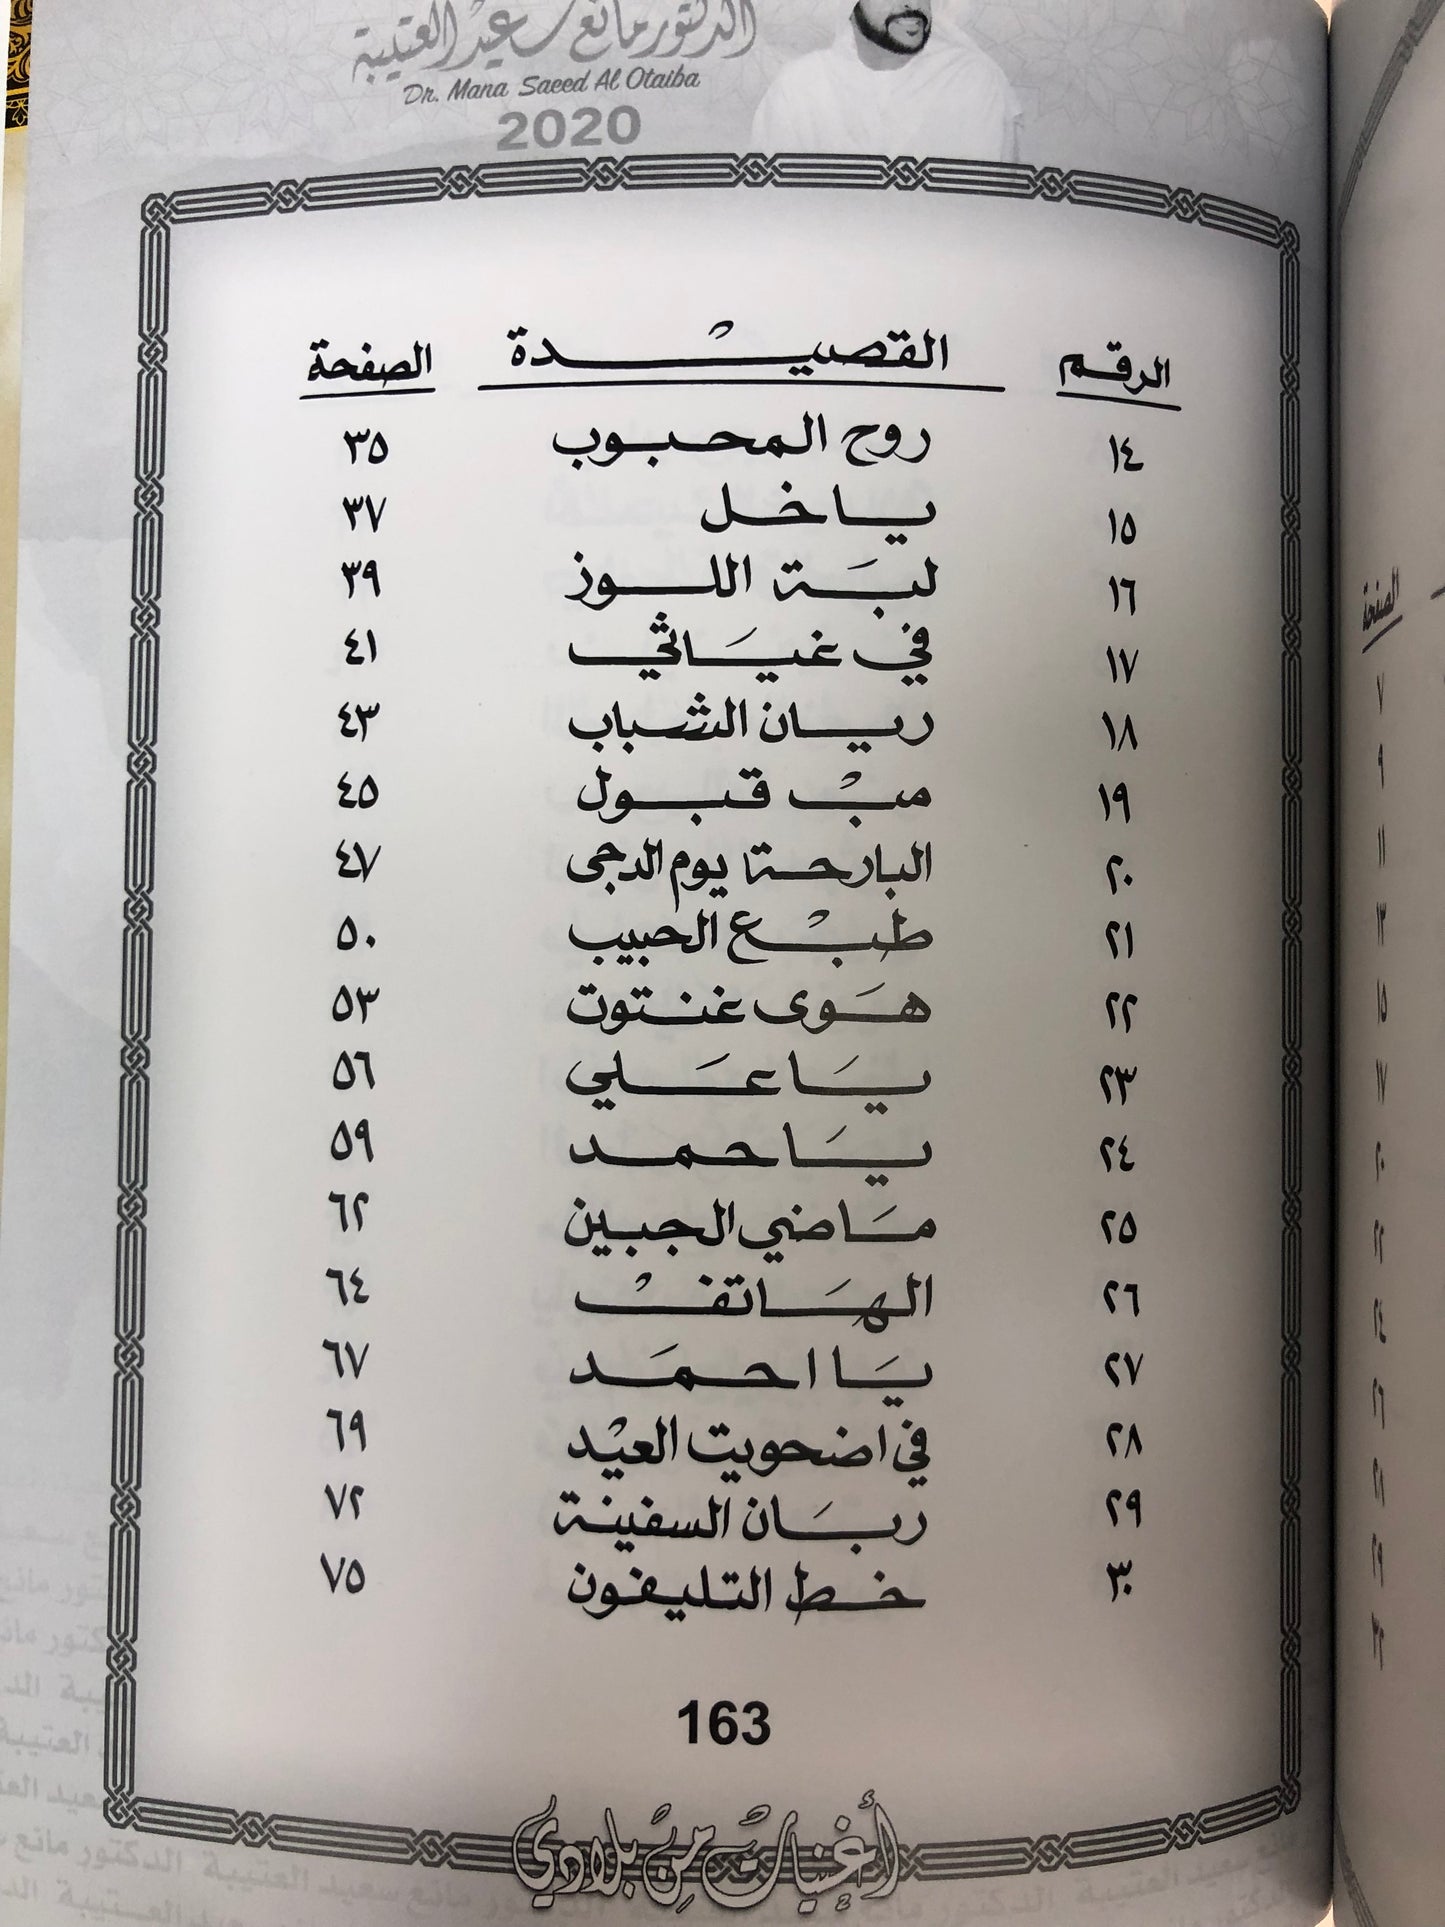 الدكتور مانع سعيد العتيبة
Dr. Mana Saeed Al Otaiba
2020
الرقم القصيدة الصفحة
١٤ روح المحبوب ٣٥
١٥ يا خل ٣٧
١٦ لبة اللوز ٣٩
١٧ في غياثي ٤١
١٨ ريان الشباب ٤٣
١٩ مب قبول ٤٥
٢٠ البارحة يوم الدجى ٤٧
٢١ طبع الحبيب ٥٠
٢٢ هوى غنتوت ٥٣
٢٣ يا علي ٥٦
٢٤ يا حمد ٥٩
٢٥ ماضي الجبين ٦٢
٢٦ الهاتف ٦٤
٢٧ يا احمد ٦٧
٢٨ في اضحويت العيد ٦٩
٢٩ ربان السفينة ٧٢
٣٠ خط التليفون ٧٥
163
أغنيات من بلادي
الصفحة
٧
٩
١١
١٣
١٥
١٧
٢٠
٢٢
٢٤
٢٦
٢٩
٣٢